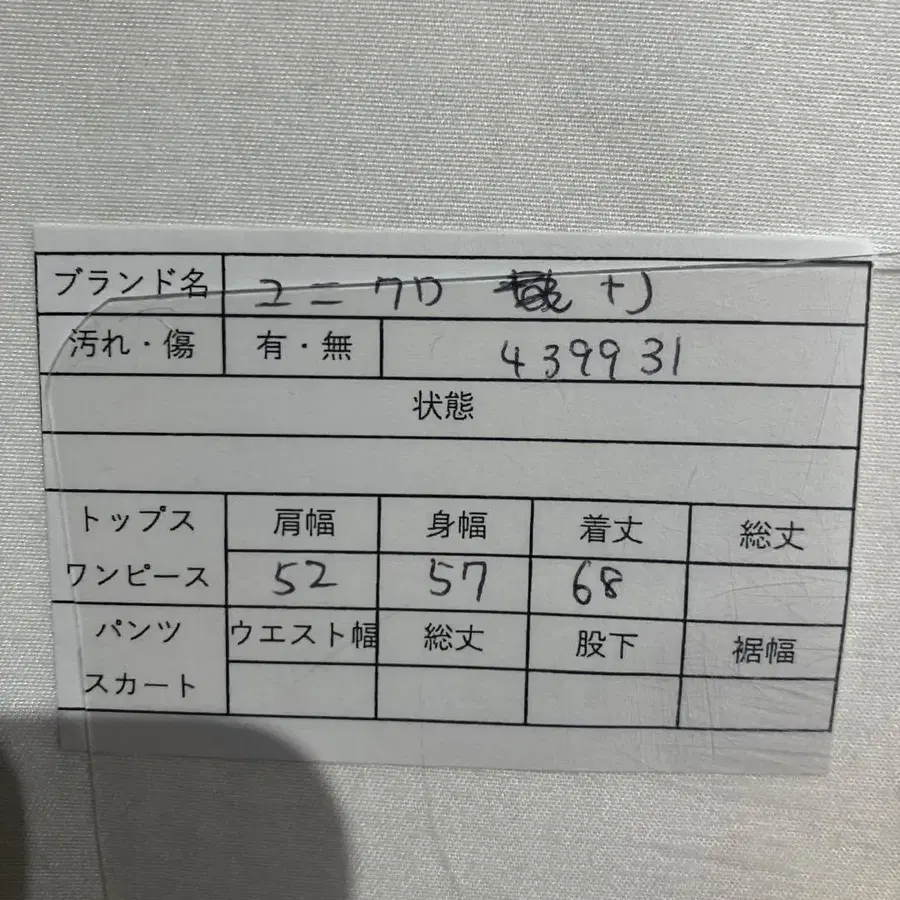 ブランド名 ユニクロ +J
汚れ・傷 有・無 439931
状態
トップス 肩幅 身幅 着丈 総丈
ワンピース 52 57 68
パンツ ウエスト幅 総丈 股下 裾幅
スカート